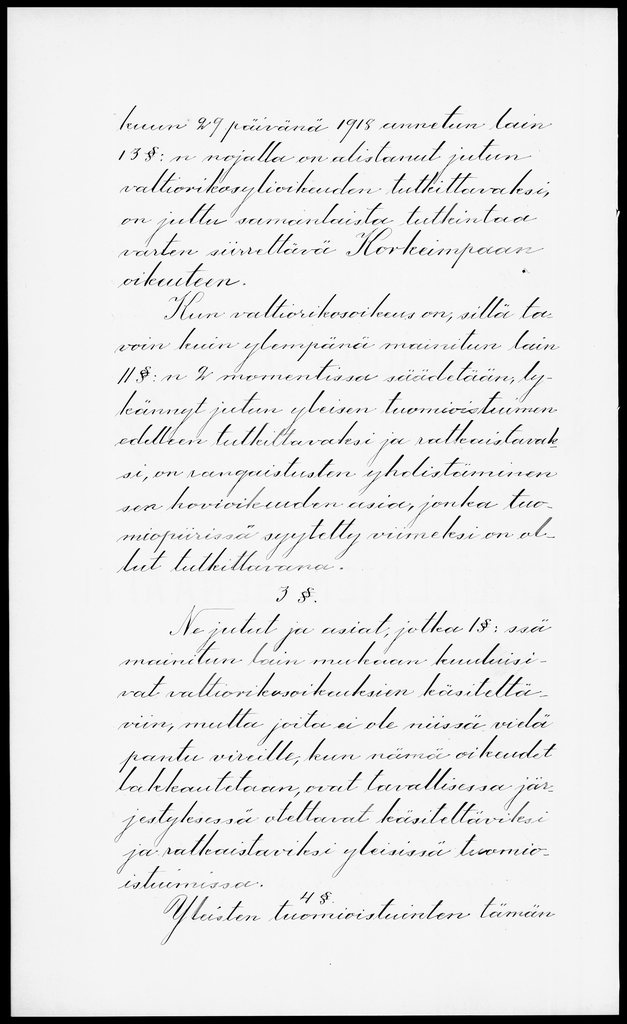 kuun 29 päivänä 1918 annetun lain
13 §:n nojalla on alistanut jutun
valtiorikosylioikeuden tutkittavaksi,
on juttu samanlaista tutkintaa
varten siirrettävä Korkeimpaan
oikeuteen.
Kun valtiorikosoikeus on, sillä ta-
voin kuin ylempänä mainitun lain
11 §:n 2 momentissa säädetään, ly-
kännyt jutun yleisen tuomioistuimen
edelleen tutkittavaksi ja ratkaistavak-
si, on rangaistusten yhdistäminen
sen hovioikeuden asia, jonka tuo-
miopiirissä syytetty viimeksi on ol-
lut tutkittavana.
3 §.
Ne jutut ja asiat, jotka 1 §:ssä
mainitun lain mukaan kuuluisi-
vat valtiorikosoikeuksien käsiteltä-
viin, mutta joita ei ole niissä vielä
pantu vireille, kun nämä oikeudet
lakkautetaan, ovat tavallisessa jär-
jestyksessä otettavat käsiteltäviksi
ja ratkaistaviksi yleisissä tuomio-
istuimissa.
4 §.
Yleisten tuomioistuinten tämän